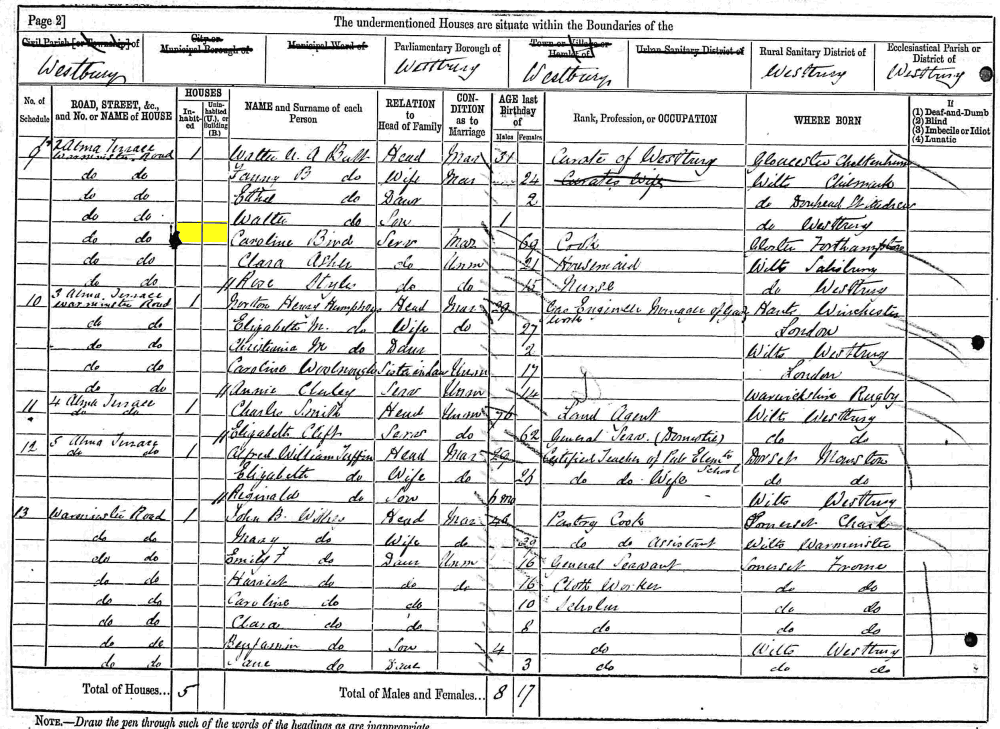 Page 2]
The undermentioned Houses are situate within the Boundaries of the
Civil Parish [or Township] of
City or Municipal Borough of
Municipal Ward of
Parliamentary Borough of
Town or Village or Hamlet of
Urban Sanitary District of
Rural Sanitary District of
Ecclesiastical Parish or District of
Westbury Westbury Westbury Westbury Westbury
No. of Schedule
ROAD, STREET, &c., and No. or NAME of HOUSE
HOUSES
In-habited
Unin-habited (U.), or Building (B.)
NAME and Surname of each Person
RELATION to Head of Family
CON-DITION as to Marriage
AGE last Birthday of
Males Females
Rank, Profession, or OCCUPATION
WHERE BORN
If
(1) Deaf-and-Dumb
(2) Blind
(3) Imbecile or Idiot
(4) Lunatic
9 2 Alma Terrace Warminster Road 1 Walter A Butt Head Mar 31 Curate of Westbury Gloucester Cheltenham
do do Fanny B do Wife Mar 24 Curates Wife Wilts Chilmark
do do Ethel do Daur 2 do Donhead St Andrew
do do Walter do Son 1 do Westbury
do do Caroline Bird Serv Mar 69 Cook Gloster
do do Clara do Unm 21 Housemaid Wilts Salisbury
do do Rose Styles do do 15 Nurse do Westbury
10 3 Alma Terrace Warminster Road 1 Henry Humphrys Head Mar 29 Gas Engineer Manager of Gas Work Hants Winchester
do do Elizabeth M. do Wife do 27 London
do do Christiania M do Daur 2 Wilts Westbury
do do Caroline Woolnough Sister in law Unm 17 London
do do Annie Serv Unm 14 Warwickshire Rugby
11 4 Alma Terrace do do 1 Charles Smith Head Unm 76 Land Agent Wilts Westbury
Elizabeth Clift Serv do 62 General Serv. (Domestic) do do
12 5 Alma Terrace do do 1 Alfred William Head Mar 29 Certified Teacher of Pub Elem School Dorset
Elizabeth do Wife do 26 do do Wife do do
Reginald do Son 6 mo Wilts Westbury
13 Warminster Road 1 John B. Head Mar 46 Pastry Cook Somerset Chard
do do Mary do Wife do do do Assistant Wilts Warminster
do do Emily F do Daur Unm 16 General Servant Somerset Frome
do do Harriet do do do 16 Cloth Worker do do
do do Caroline do do 10 Scholar do do
do do Clara do do 8 do do do
do do Benjamin do Son 4 do Wilts Westbury
do do Jane do Daur 3 do do do
Total of Houses... 5 Total of Males and Females... 8 17
NOTE.—Draw the pen through such of the words of the headings as are inappropriate.